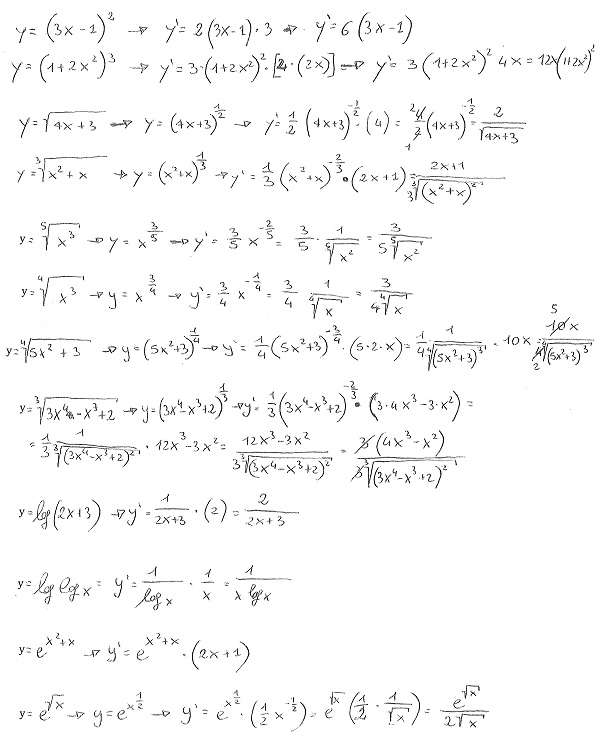 y = (3x-1)² → y' = 2(3x-1)·3 → y' = 6(3x-1)
y = (1+2x²)³ → y' = 3·(1+2x²)²·[2·(2x)] → y' = 3(1+2x²)²·4x = 12x(1+2x²)²
y = √(4x+3) → y = (4x+3)^(1/2) → y' = 1/2 (4x+3)^(-1/2)·(4) = 4/2 (4x+3)^(-1/2) = 2/√(4x+3)
y = ∛(x²+x) → y = (x²+x)^(1/3) → y' = 1/3 (x²+x)^(-2/3)·(2x+1) = (2x+1)/(3 ∛((x²+x)²))
y = ⁵√(x³) → y = x^(3/5) → y' = 3/5 x^(-2/5) = 3/5 · 1/⁵√(x²) = 3/(5 ⁵√(x²))
y = ⁴√(x³) → y = x^(3/4) → y' = 3/4 x^(-1/4) = 3/4 1/⁴√x = 3/(4 ⁴√x)
y = ⁴√(5x²+3) → y = (5x²+3)^(1/4) → y' = 1/4 (5x²+3)^(-3/4)·(5·2·x) = 1/4 1/⁴√((5x²+3)³) · 10x = 5 10x/(2 4 ⁴√((5x²+3)³))
y = ∛(3x⁴-x³+2) → y = (3x⁴-x³+2)^(1/3) → y' = 1/3 (3x⁴-x³+2)^(-2/3)·(3·4x³-3·x²) =
= 1/3 1/∛((3x⁴-x³+2)²) · 12x³-3x² = (12x³-3x²)/(3 ∛((3x⁴-x³+2)²)) = 3(4x³-x²)/(3 ∛((3x⁴-x³+2)²))
y = log(2x+3) → y' = 1/(2x+3) · (2) = 2/(2x+3)
y = log log x = y' = 1/(log x) · 1/x = 1/(x log x)
y = e^(x²+x) → y' = e^(x²+x)·(2x+1)
y = e^(√x) → y = e^(x^(1/2)) → y' = e^(x^(1/2))·(1/2 x^(-1/2)) = e^(√x) (1/2 · 1/√x) = e^(√x)/(2√x)